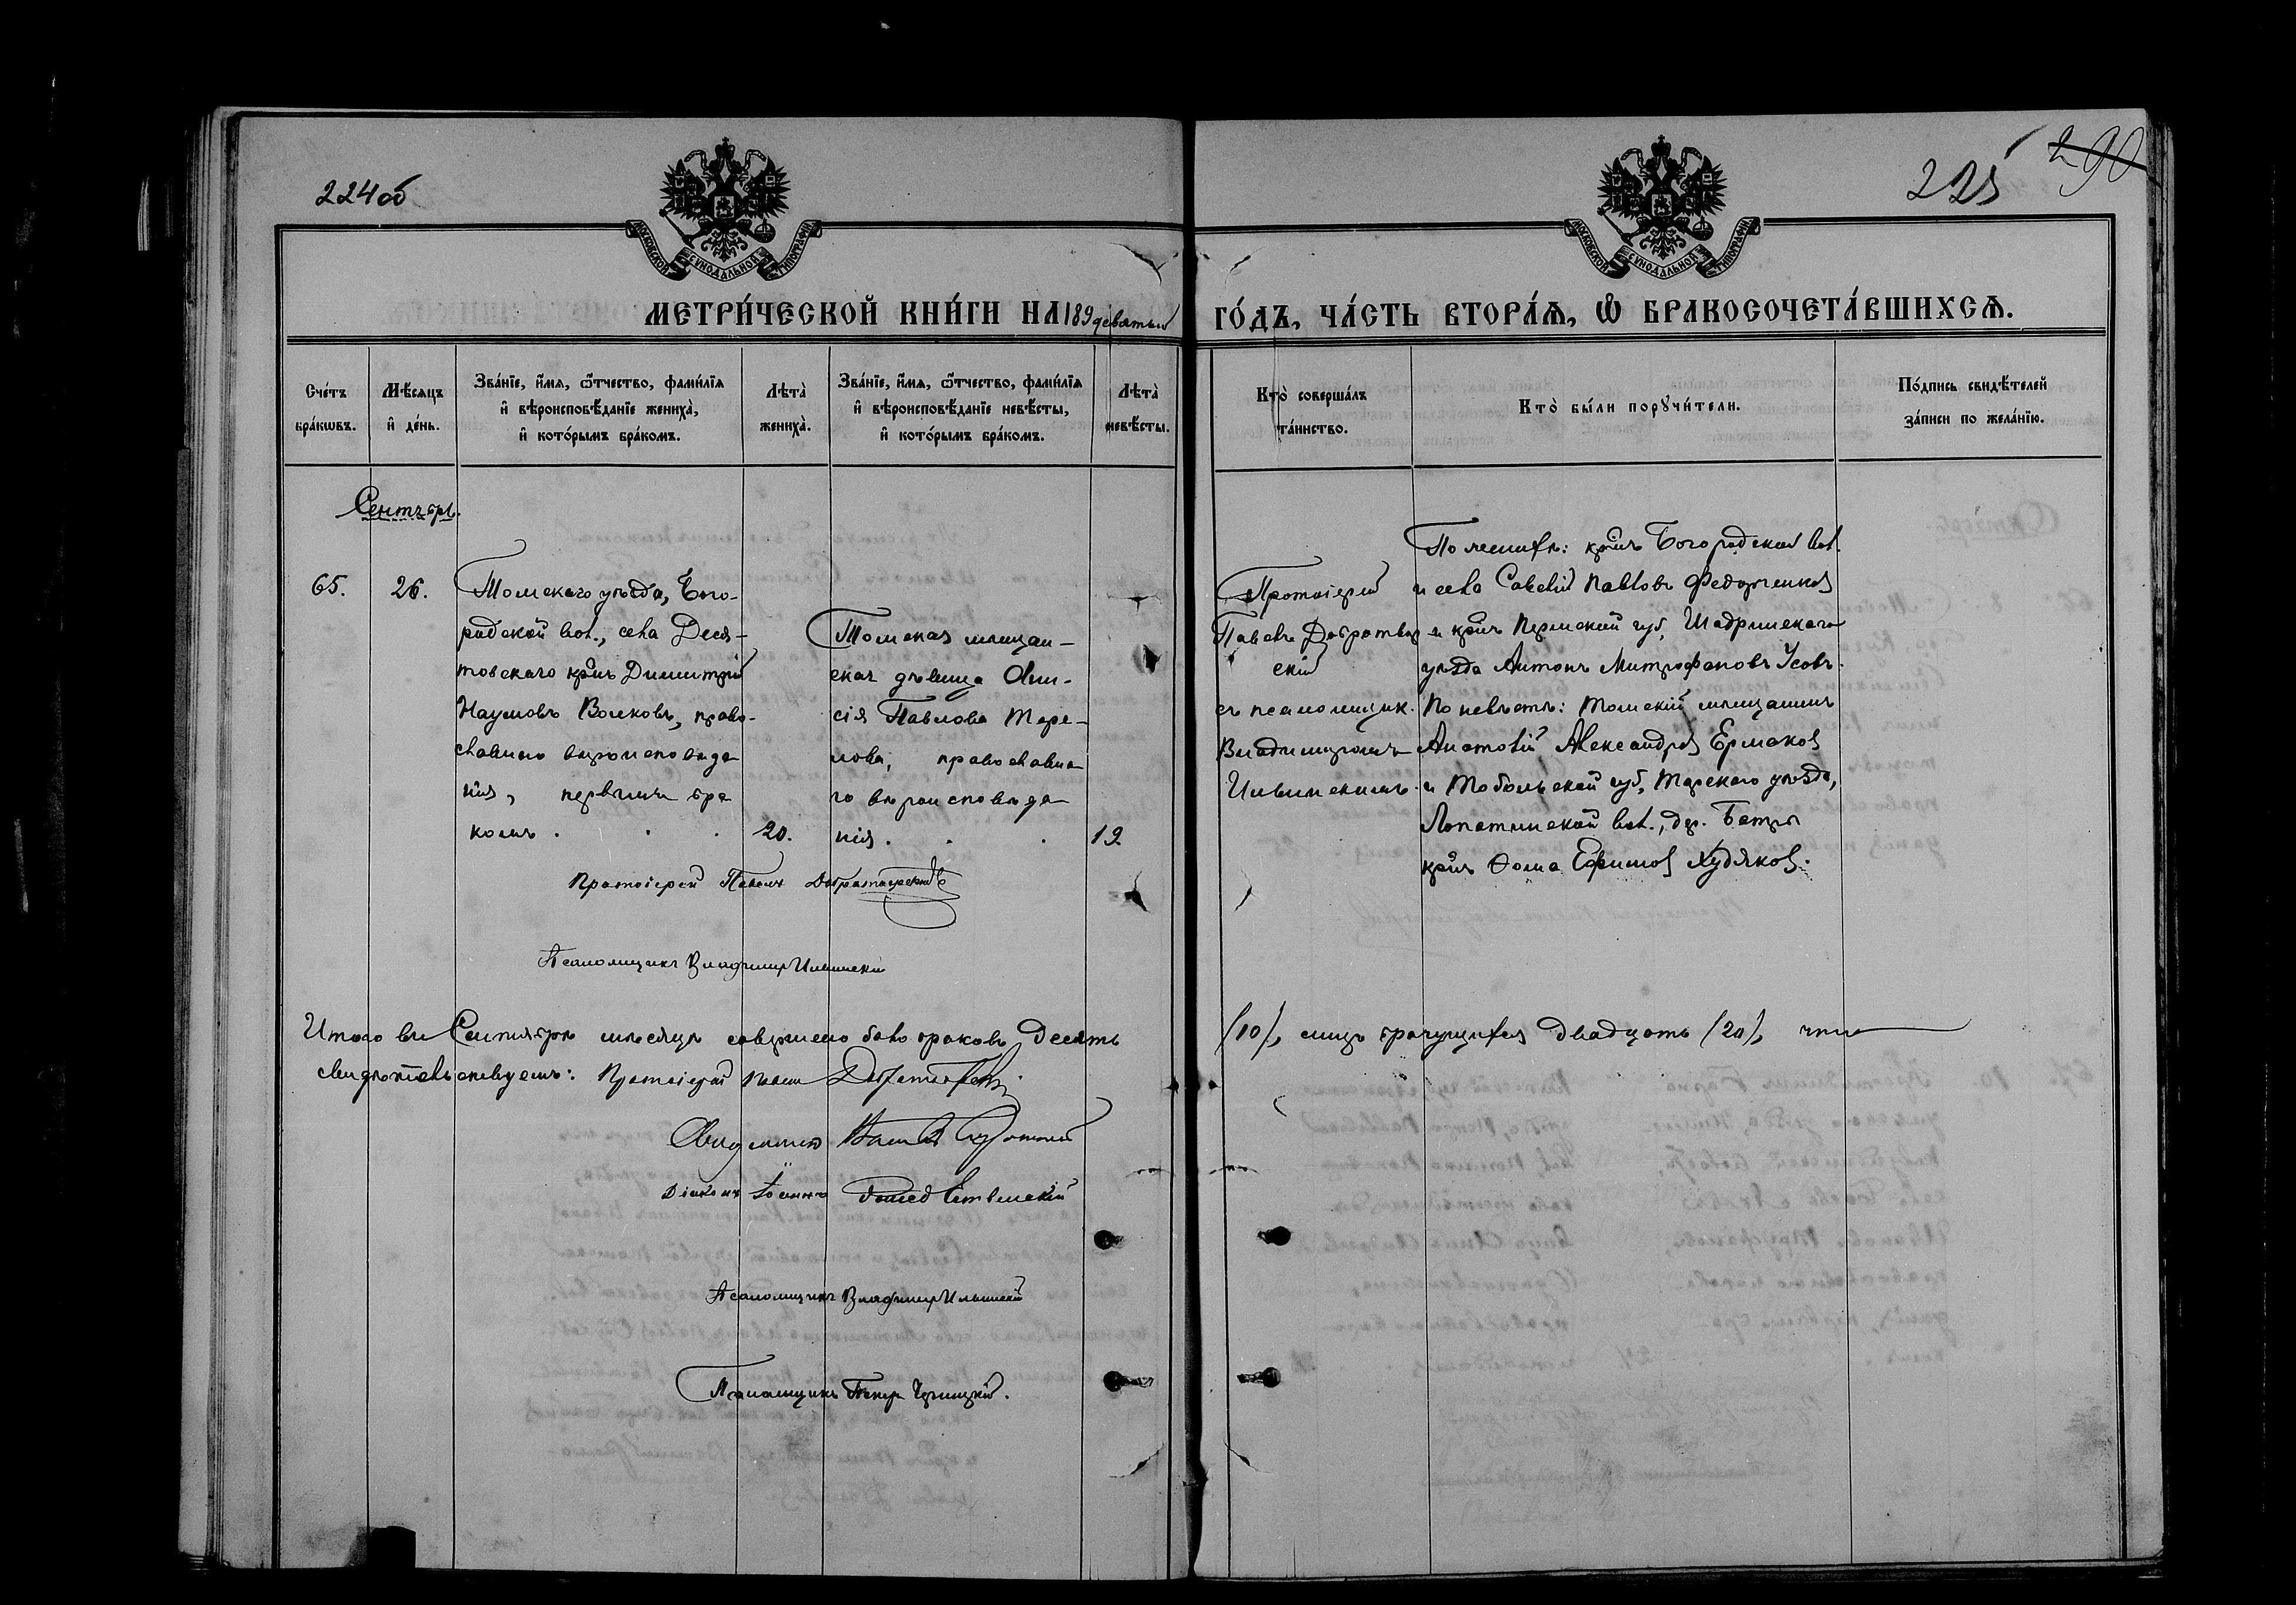 224 об
225
290
МОСКОВСКОЙ СУНОДАЛЬНОЙ ТИПОГРАФІИ
МОСКОВСКОЙ СУНОДАЛЬНОЙ ТИПОГРАФІИ
МЕТРИ́ЧЕСКОЙ КНИ́ГИ НА 189 девятый ГО́ДЪ, ЧА́СТЬ ВТОРА́Ѧ, Ѡ БРАКОСОЧЕТА́ВШИХСѦ.
Сче́тъ бра́кѡвъ.
Мѣ́сяцъ и҆ де́нь.
Зва́нїе, и҆́мѧ, ѻ҆́тчество, фамѝлїѧ
и҆ вѣроисповѣ́данїе жениха̀,
и҆ кото́рымъ бра́комъ.
Лѣта̀ жениха̀.
Зва́нїе, и҆́мѧ, ѻ҆́тчество, фамѝлїѧ
и҆ вѣроисповѣ́данїе невѣ́сты,
и҆ кото́рымъ бра́комъ.
Лѣта̀ невѣ́сты.
Кто̀ соверша́лъ та́инство.
Кто̀ бы́ли порꙋчи́тели.
По́дпись свидѣ́телей за́писи по жела́нїю.
Сентябрь.
65.
26.
Томскаго уѣзда, Бого-
родской вол., села Деся-
товскаго кр-нъ Димитрій
Наумовъ Волковъ, право-
славнаго вѣроисповѣда
нія, первымъ бра
комъ . . .
20.
Томская мѣщан-
ская дѣвица
Павлова
православна
го вѣроисповѣда
нія . .
19
Протоіерей
Павелъ Добротвор
скій
съ псаломщик.
Владиміромъ
Ильинскимъ.
По женихѣ: кр-нъ Богородской вол.
и села Савелій Павловъ Федорченков
и кр-нъ Пермской губ, Шадринскаго
уѣзда Антонъ Митрофановъ Усовъ.
По невѣстѣ: томскій мѣщанинъ
Анатолій Александров Ермаков
и Тобольской губ, Тарскаго уѣзда,
Лопатинской вол., дер.
кр-нъ Фома Ефимов Худяков.
Протоіерей Павелъ Добротворскій
Псаломщикъ Владиміръ Ильинскій
Итого въ Сентябрѣ мѣсяцѣ совершено было браковъ десять (10), лицъ брачущихся двадцать (20), что
свидѣтельствуемъ: Протоіерей Павелъ Добротворскій
Священникъ
Діаконъ Іоаннъ
Псаломщикъ Владиміръ Ильинскій
Псаломщикъ Петръ